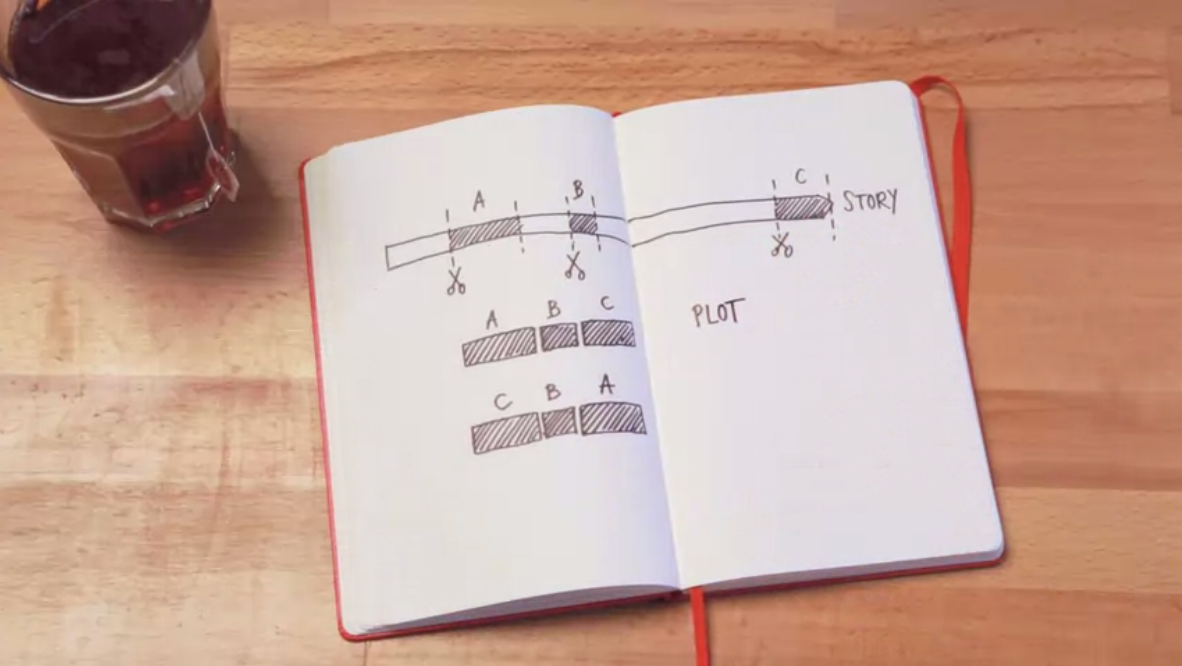 A B C STORY
A B C PLOT
C B A